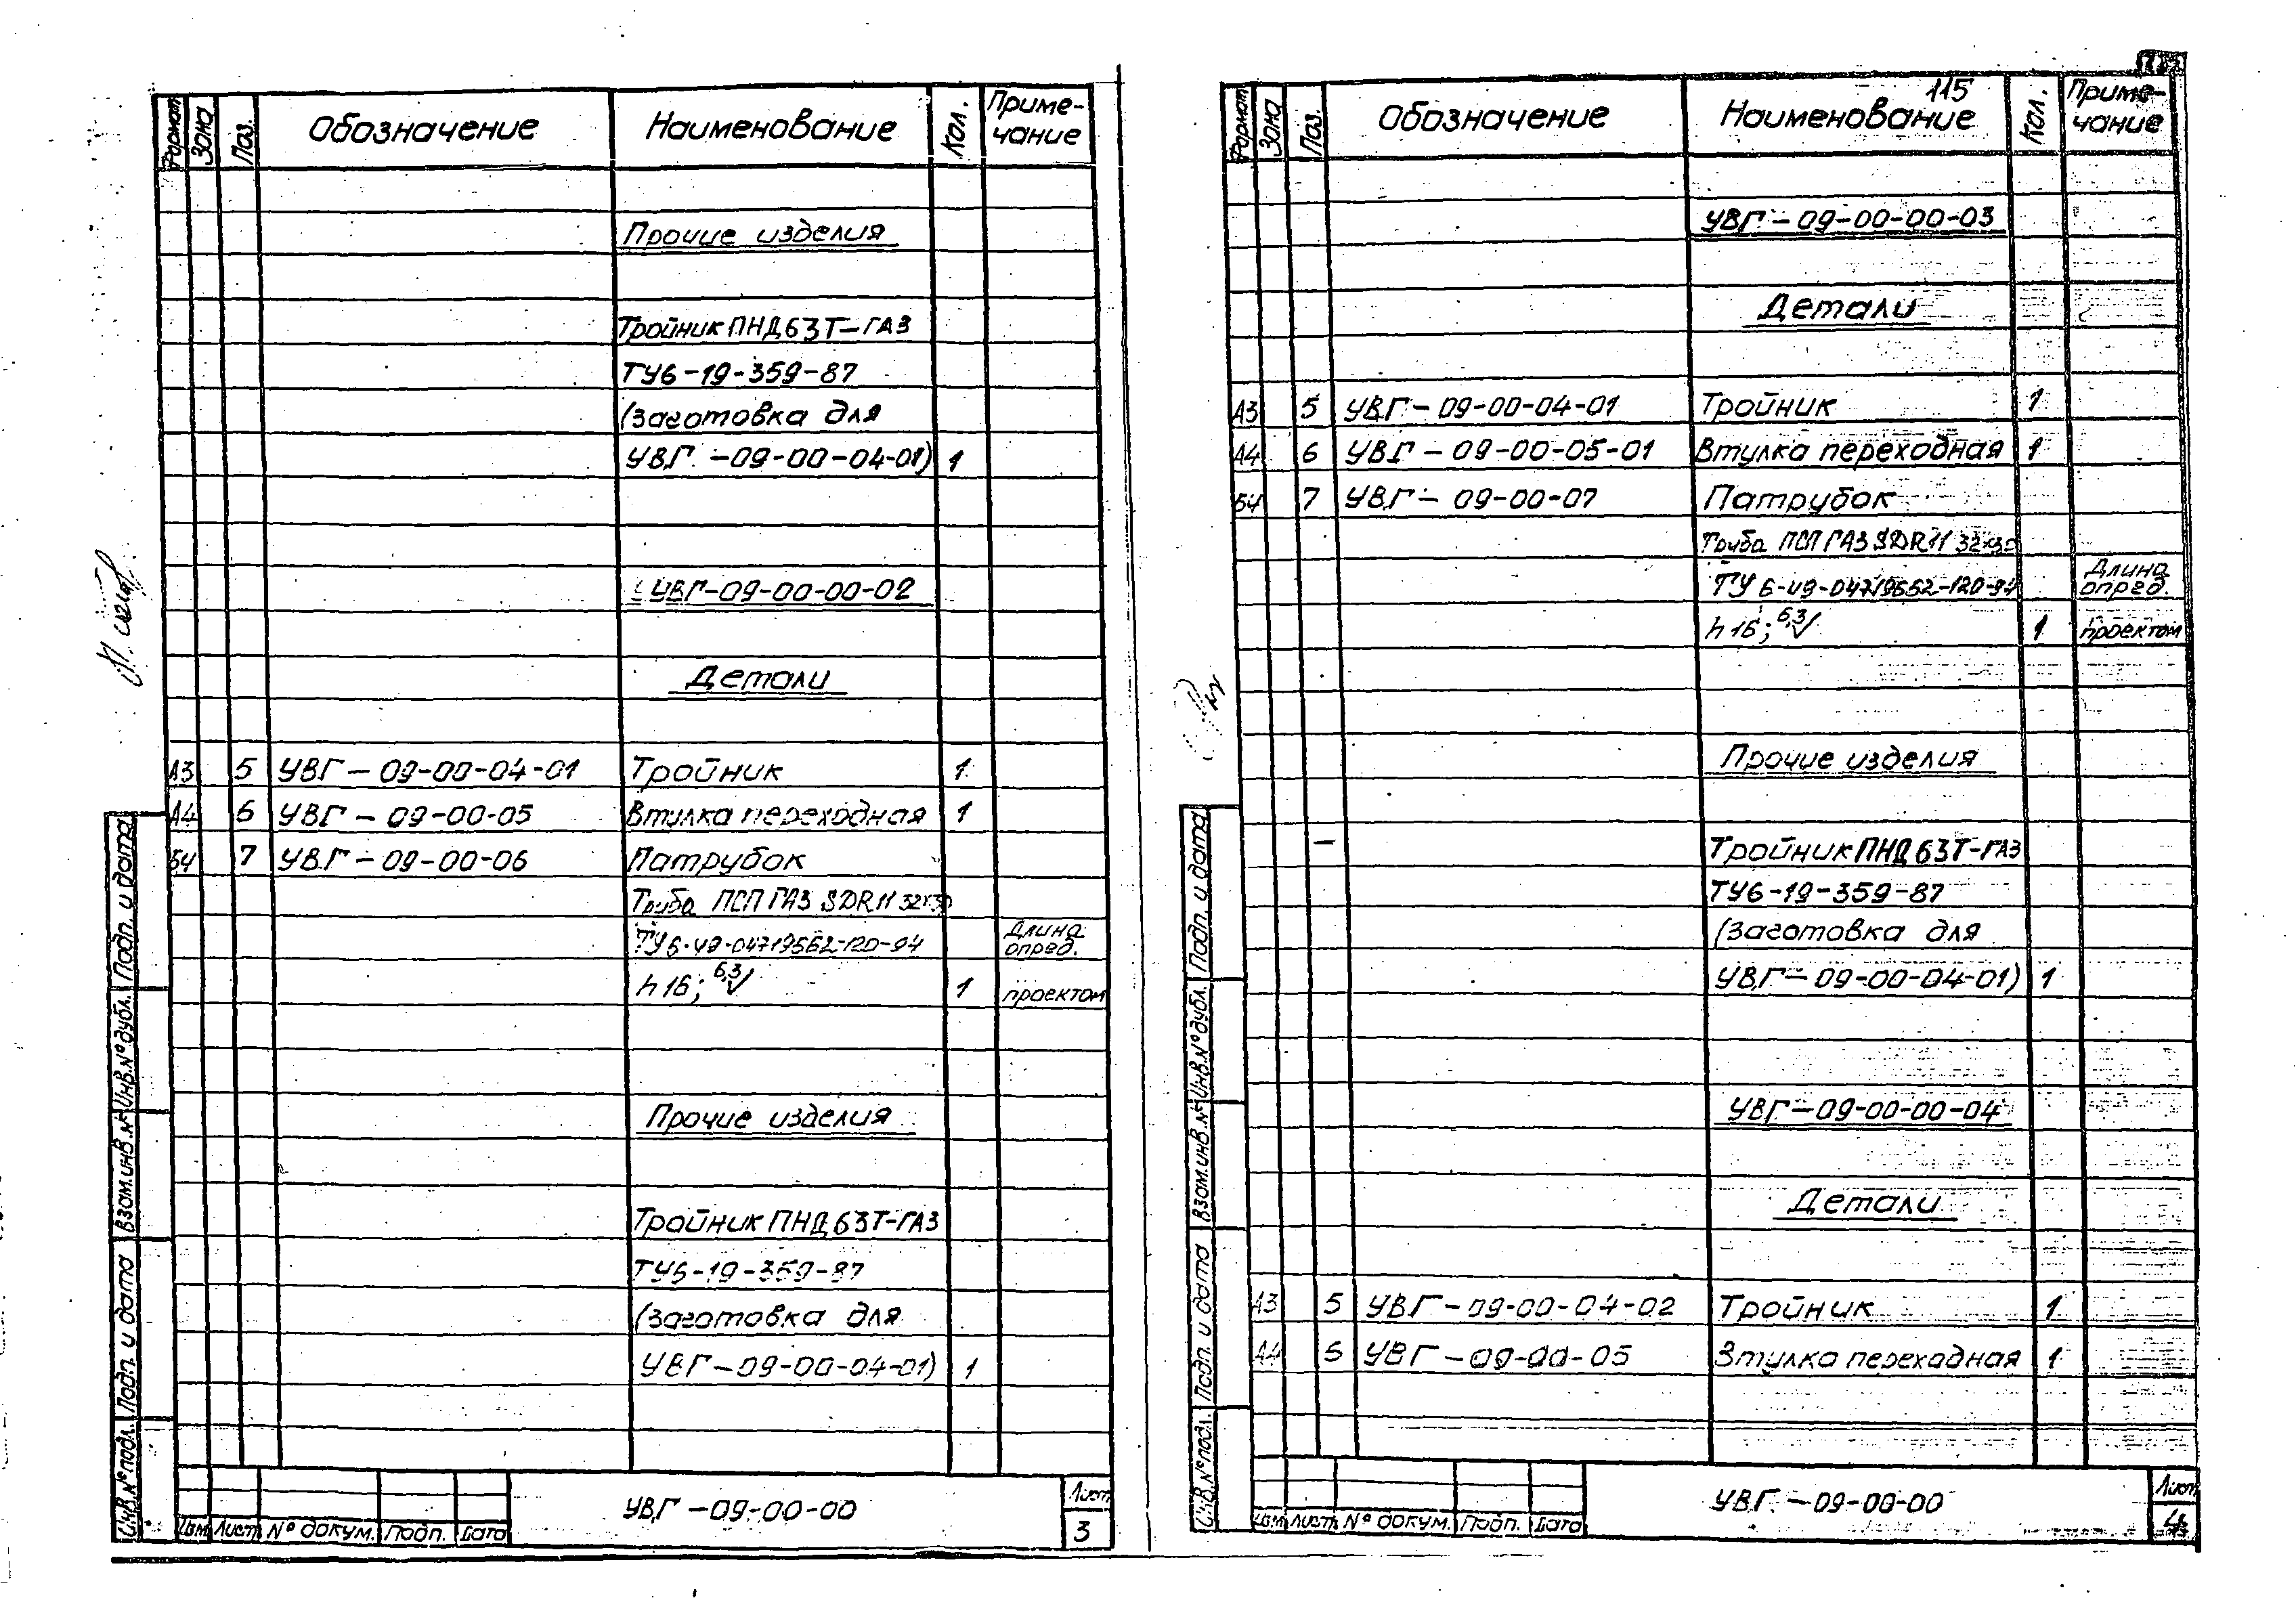 Формат Зона Поз. Обозначение Наименование Кол. Приме-
чание
Прочие изделия
Тройник ПНД 63Т-ГАЗ
ТУ6-19-359-87
(Заготовка для
УВГ-09-00-04-01) 1
УВГ-09-00-00-02
Детали
А3 5 УВГ-09-00-04-01 Тройник 1
А4 6 УВГ-09-00-05 Втулка переходная 1
БЧ 7 УВГ-09-00-06 Патрубок
Труба ПСП ГАЗ SDR11
ТУ6-49-04719662-120-94 Длина
опред.
h16; 6,3 1 проектом
Прочие изделия
Тройник ПНД 63Т-ГАЗ
ТУ6-19-359-87
(Заготовка для
УВГ-09-00-04-01) 1
Инв.№подл. Подп. и дата Взам.инв.№ Инв.№дубл. Подп. и дата
Изм Лист № докум. Подп. Дата
УВГ-09-00-00
Лист
3
115
Формат Зона Поз. Обозначение Наименование Кол. Приме-
чание
УВГ-09-00-00-03
Детали
А3 5 УВГ-09-00-04-01 Тройник 1
А4 6 УВГ-09-00-05-01 Втулка переходная 1
БЧ 7 УВГ-09-00-07 Патрубок
Труба ПСП ГАЗ SDR11
ТУ 6-49-04719662-120-94 Длина
опред.
h16; 6,3 1 проектом
Прочие изделия
Тройник ПНД 63Т-ГАЗ
ТУ6-19-359-87
(Заготовка для
УВГ-09-00-04-01) 1
УВГ-09-00-00-04
Детали
А3 5 УВГ-09-00-04-02 Тройник 1
А4 6 УВГ-09-00-05 Втулка переходная 1
Инв.№подл. Подп. и дата Взам.инв.№ Инв.№дубл. Подп. и дата
Изм Лист № докум. Подп. Дата
УВГ-09-00-00
Лист
4